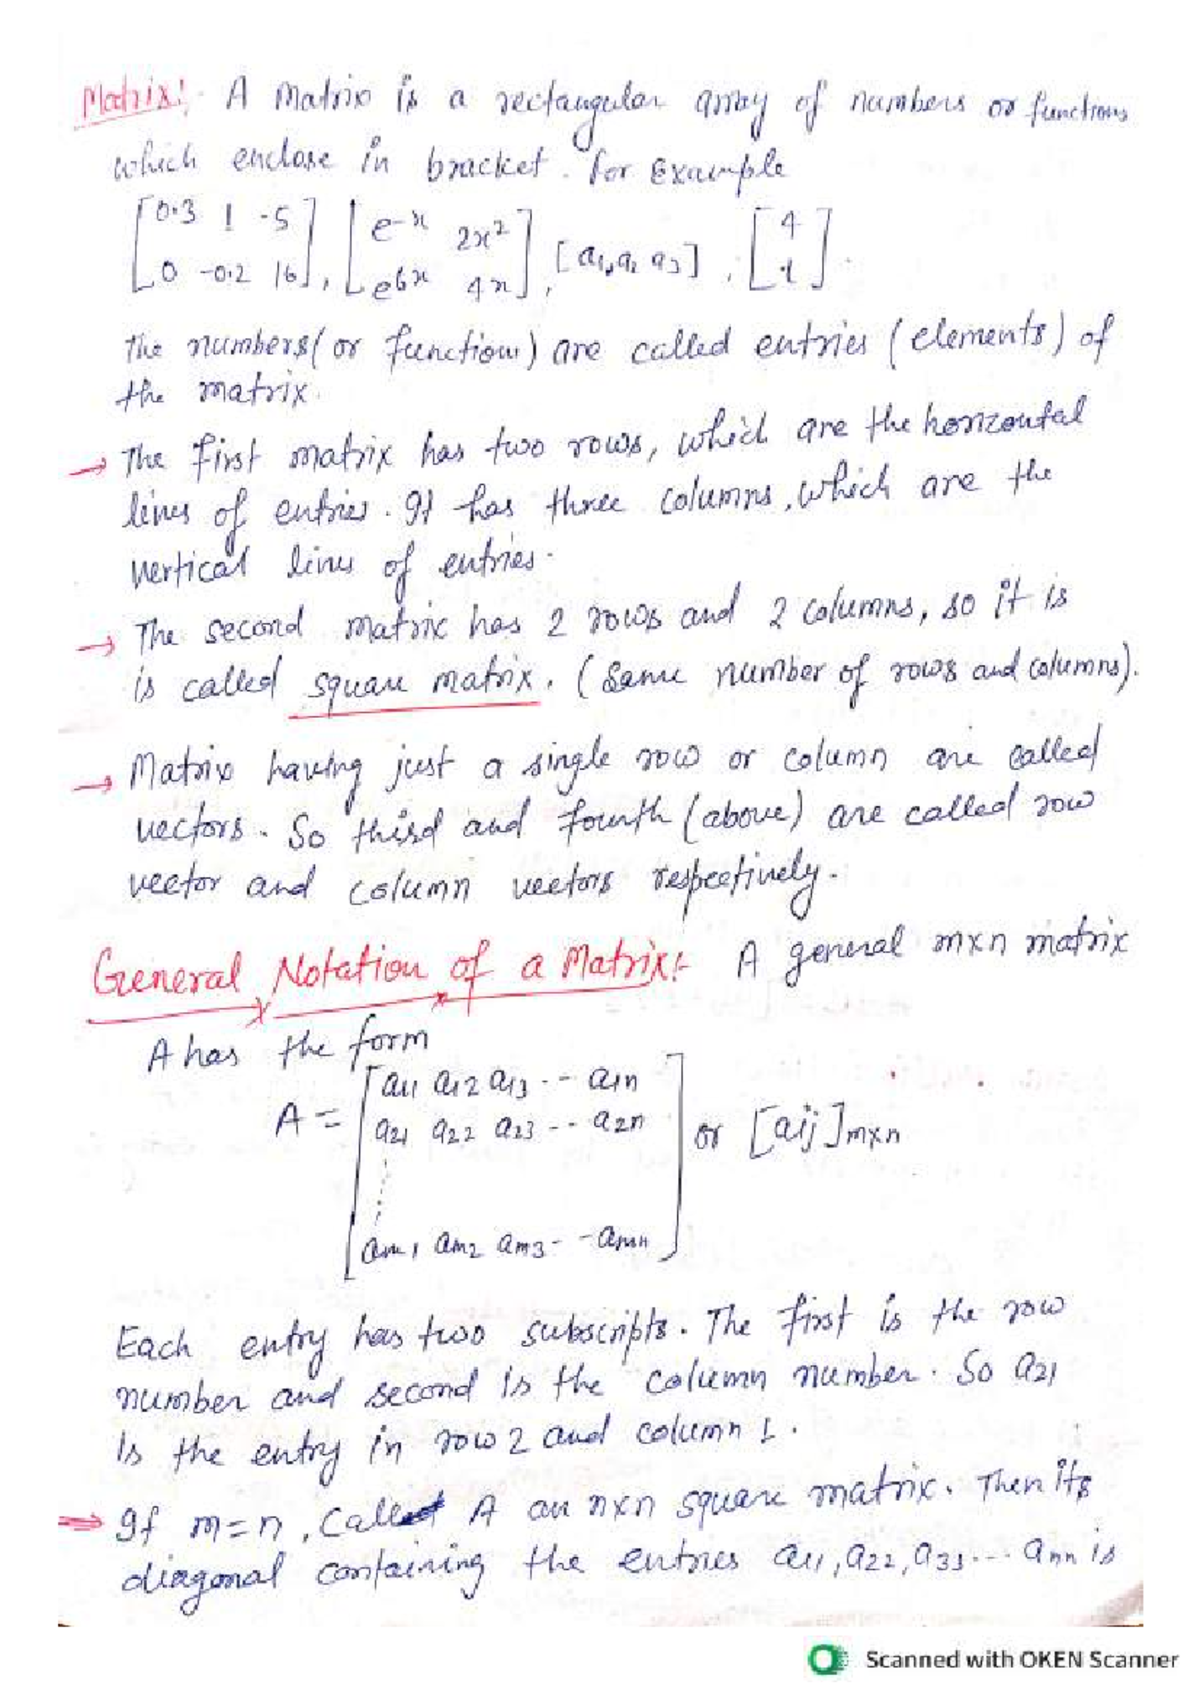 Matrix:- A matrix is a rectangular array of numbers or functions
which enclose in bracket. For Example
[0.3 1 -5], [e^-x 2x^2], [a1, a2 a3], [4]
[0 -0.2 16], [e^6x 4x], [1].
The numbers (or functions) are called entries (elements) of
the matrix.
→ The first matrix has two rows, which are the horizontal
lines of entries. It has three columns, which are the
vertical lines of entries.
→ The second matrix has 2 rows and 2 columns, so it is
is called square matrix. (Same number of rows and columns).
→ Matrix having just a single row or column are called
vectors. So third and fourth (above) are called row
vector and column vectors respectively.
General Notation of a Matrix:- A general m×n matrix
A has the form
a11 a12 a13 -- a1n
A = a21 a22 a23 -- a2n or [aij]m×n
am1 am2 am3 -- amn
Each entry has two subscripts. The first is the row
number and second is the column number. So a21
is the entry in row 2 and column 1.
⇒ If m=n, called A an n×n square matrix. Then its
diagonal containing the entries a11, a22, a33 --- ann is
Scanned with OKEN Scanner